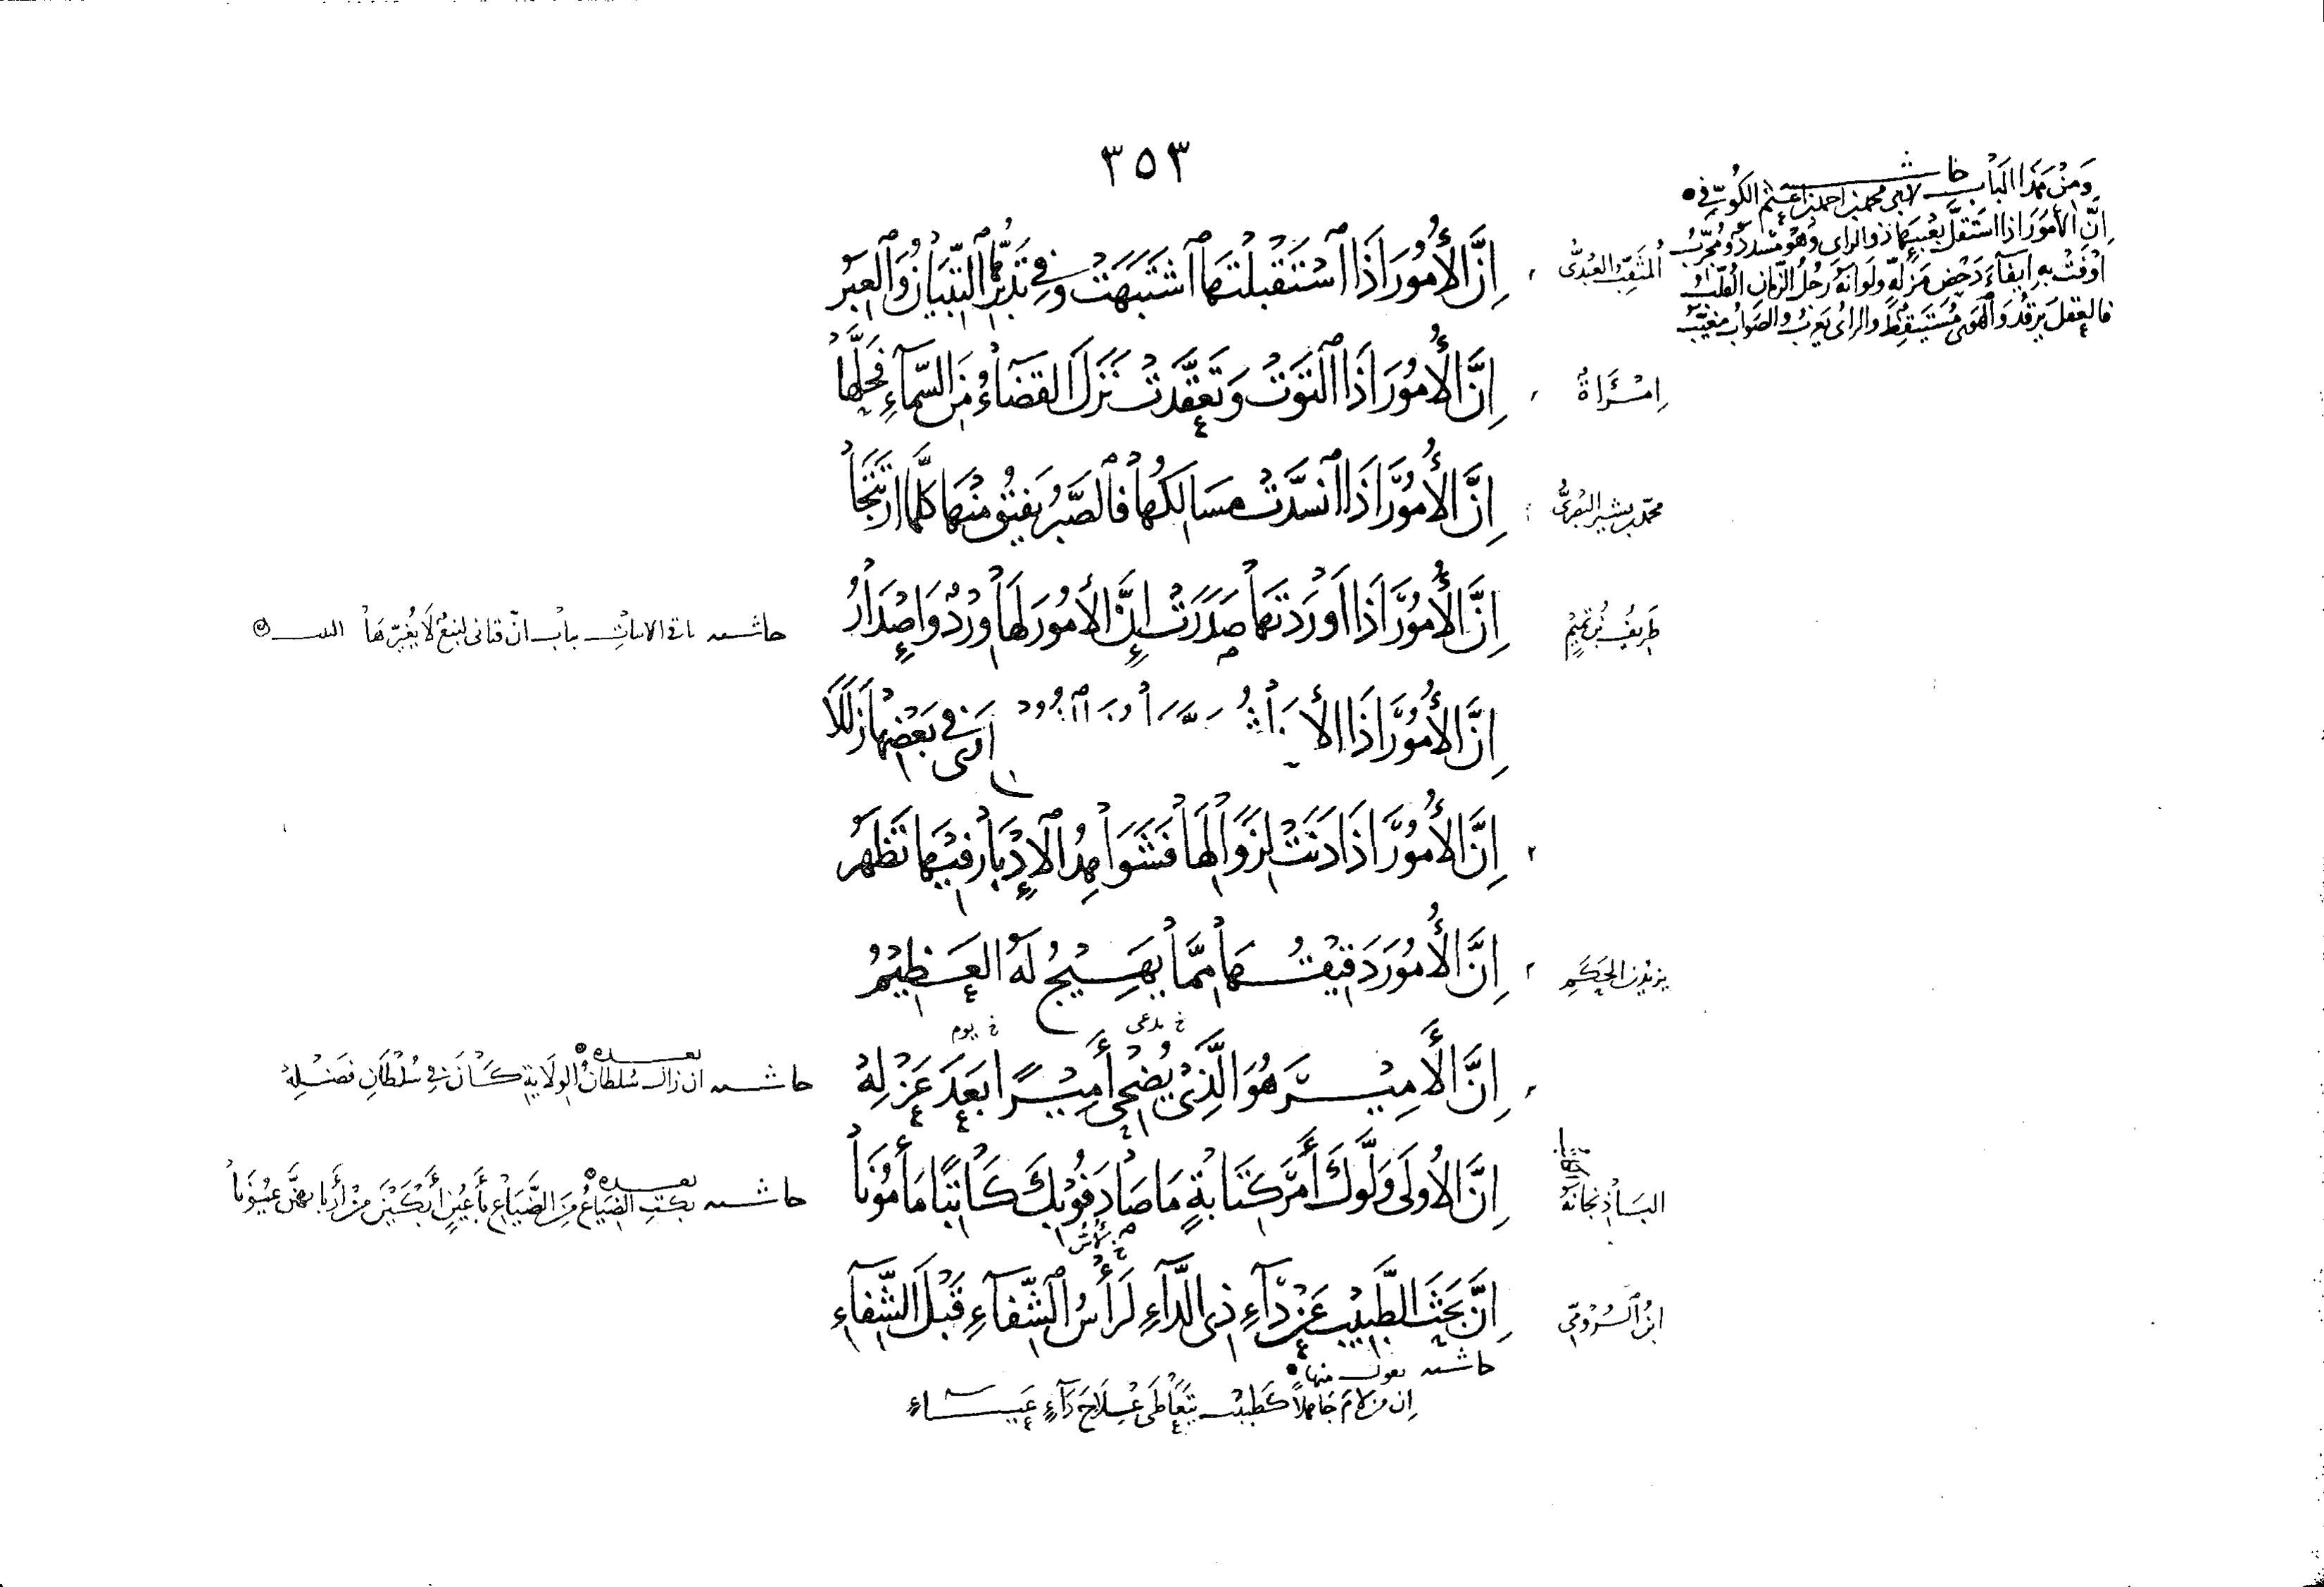 ٣٥٣
حاشية
وَمِنْ هَذَا الْبَابِ لأبي محمد بن احمد بن اعثم الكُوفي
إِنَّ الأُمُورَ اذا استَقَلَّ بِغِبِّهَا ذو الراى وَهُوَ مُسَدَّدٌ وَمُجَرَّبُ
اوْفَتْ بِهِ ايفَاءَ دَحْضٍ مَزِلَّةٍ ولَوَ انَّهُ رَجُلُ الزَّمان القُلَّبُ
فالعقلُ يَرقُدُ وَالهَوَى مُسْتَيقِظٌ والراى يَعزبُ والصَوابُ مُغَيَّبُ
المثَقِّبُ العَبْدِىُّ
إِنَّ الأُمُورَ اذَا اسْتَقْبَلْتَهَا اشْتَبَهَتْ وَفِي تَدَبُّرِهَا التِّبْيَانُ وَالعِبَرُ
اِمْرَأَةٌ
إِنَّ الأُمُورَ اذَا الْتَوَتْ وَتَعَقَّدَتْ نَزَلَ القَضَاءُ مِنَ السَّمَاءِ فَحَلَّهَا
محمّد بن بشير البَصرىُّ
إِنَّ الأُمُورَ اذَا انْسَدَّتْ مَسَالِكُهَا فَالصَّبْرُ يَفْتُقُ مِنْهَا كُلَّمَا ارْتَتَجَا
طَرِيفُ بنُ تَميمٍ
إِنَّ الأُمُورَ اذَا اوْرَدْتَهَا صَدَرَتْ إِنَّ الأُمُورَ لَهَا وِرْدٌ وَاِصْدَارُ
حاشية باقي الابيات بباب انّ قناتى لنبعٌ لَا يُغَيِّرُهَا البيت
إِنَّ الأُمُورَ اذَا ارَى فِي بَعْضِهَا زَلَلَا
إِنَّ الأُمُورَ اذَا دَنَتْ لِزَوَالِهَا فَشَوَاهِدُ الإِدْبَارِ فِيْهَا تَظْهَرُ
يزيد بن الحَكَمِ
إِنَّ الأُمُورَ دَقِيقُهَا مِمَّا يَهِيْجُ لَهُ العَظِيْمُ
خ يدعى خ يوم
إِنَّ الأَمِيْرَ هُوَ الَّذِيْ يُضْحِى أَمِيْرًا بَعْدَ عَزْلِهْ
حاشية بعده
ان زال سُلطانُ الولَايةِ كَانَ في سُلْطَانِ فَضْلِهْ
إِنَّ الأُولَى وَلَّوْكَ أَمْرَ كِتَابَةٍ مَا صَادَفُوْا بِكَ كَاتِبًا مَأْمُوْنَا
حاشية بعده
يَكتبُ الضِيَاعُ مِنَ الضَّيَاعِ بأَعْيُنٍ أَبْكَيْنَ مِنْ أَرْبَابِهنَّ عُيُوْنَا
ابنُ الرُوْمِيّ
إِنَّ بَحْثَ الطَّبِيْبِ عَنْ دَاءِ ذِى الدَّاءِ لَرَأْسُ الشِّفَاءِ قَبْلَ الشِّفَاءِ
حاشية يقول منها
اِن مَن لامَ جَاهِلاً كَطَبِيْبٍ يَتَعَاطَى عِلَاجَ دَاءٍ عَيَاءِ